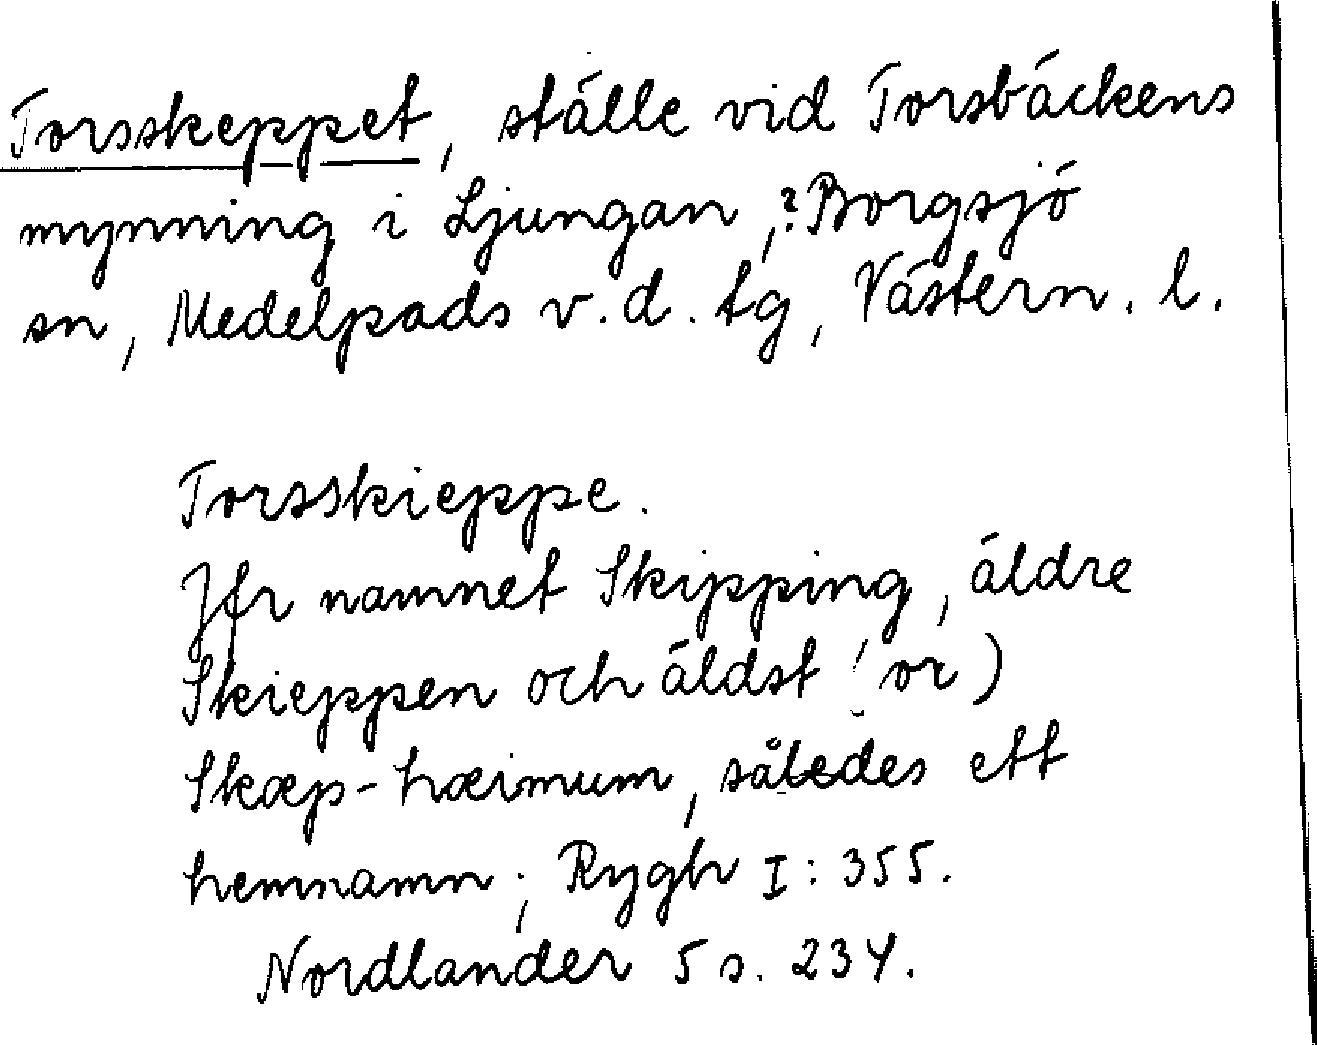 Torsskeppet, ställe vid Torsbäckens
mynning i Ljungan, ?Borgsjö
sn, Medelpads v. d. tg, Västern. l.
Torsskieppe.
Jfr namnet Skipping, äldre
Skieppen och äldst ! or)
Skæp-hæimum, således ett
hemnamn; Rygh I: 355.
Nordlander 5 s. 234.